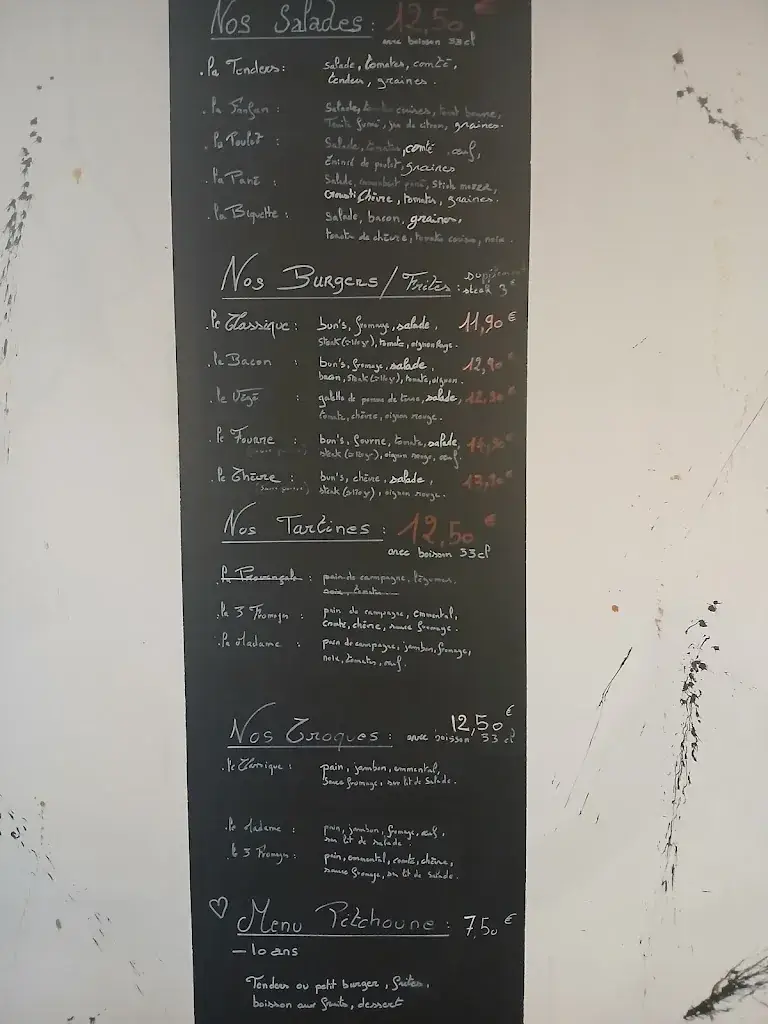 Nos Salades : 12,50 €
avec boisson 33cl
. La Tenders : salade, tomates, comté,
tenders, graines.
. La Fanfan : Salade, cuites,
Truite fumé, jus de citron, graines.
. La Poulet : Salade, tomates, comté, oeuf,
Émincé de poulet, graines
. La Pané : Salade, camembert pané, Stick mozza,
Crousti Chèvre, tomates, graines.
. La Biquette : Salade, bacon, graines,
tomate de chèvre, tomate cerise, noix.
Nos Burgers / Frites : Supplément
steak 3€
. Le Classique : bun's, fromage, salade, 11,90 €
steak (≃110gr), tomate, oignon rouge.
. Le Bacon : bun's, fromage, salade, 12,90 €
bacon, steak (≃110gr), tomate, oignon.
. Le Végé : galette de pomme de terre, salade, 12,90 €
tomate, chèvre, oignon rouge.
. Le Fourme : bun's, fourme, tomate, salade, 14,90 €
steak (≃110gr), oignon rouge, oeuf.
. Le Chèvre : bun's, chèvre, salade, 13,90 €
steak (≃110gr), oignon rouge.
Nos Tartines : 12,50 €
avec boisson 33cl
. La Provençale : pain de campagne, légumes,
. La 3 Fromages : pain de campagne, emmental,
comté, chèvre, sauce fromage.
. La Madame : pain de campagne, jambon, fromage,
noix, tomates, oeuf.
Nos Croques : 12,50 €
avec boisson 33 cl
. Le Classique : pain, jambon, emmental,
Sauce fromage, sur lit de Salade.
. Le Madame : pain, jambon, fromage, oeuf,
sur lit de salade.
. Le 3 Fromages : pain, emmental, comté, chèvre,
sauce fromage, sur lit de Salade.
♡ Menu Pitchoune : 7,50 €
— 10 ans
Tenders ou petit burger, frites,
boisson aux fruits, dessert